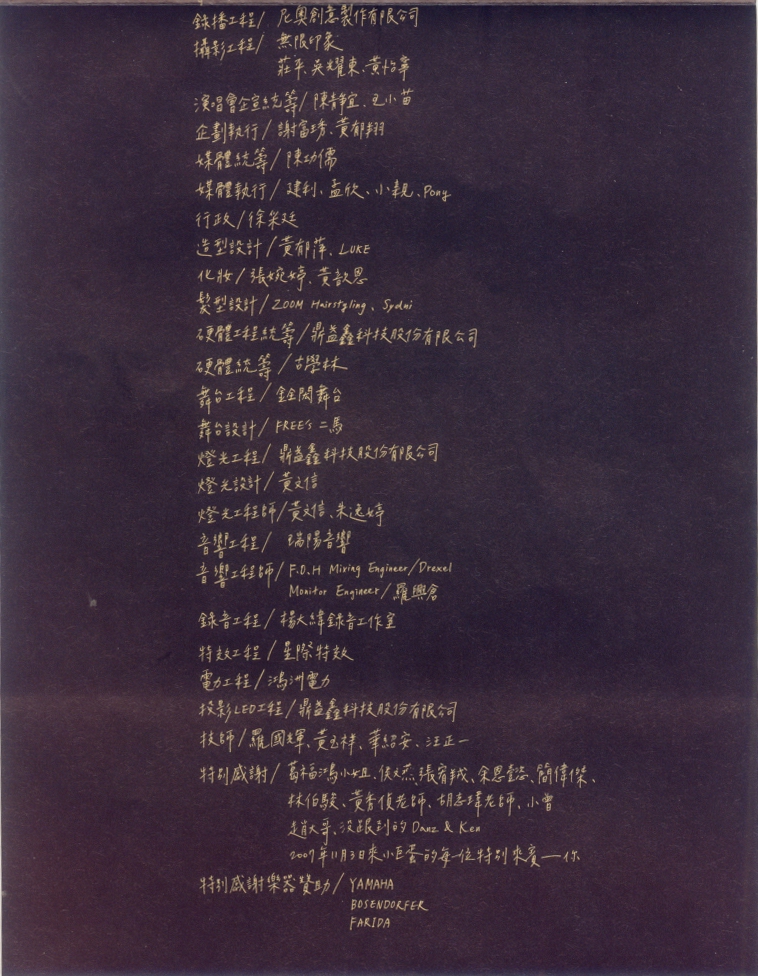 錄播工程/ 尼奧創意製作有限公司
攝影工程/ 無限印象
莊平、吳耀東、黃怡寧
演唱會企宣統籌/陳靜宜、王小苗
企劃執行/謝富琇、黃郁翔
媒體統籌/陳功儒
媒體執行/建利、孟欣、小親、Pony
行政/徐采廷
造型設計/黃郁萍、LUKE
化妝/張婉婷、黃歆恩
髮型設計/ZOOM Hairstyling、Sydni
硬體工程統籌/鼎益鑫科技股份有限公司
硬體統籌/古學林
舞台工程/金閎舞台
舞台設計/FREE's 二馬
燈光工程/鼎益鑫科技股份有限公司
燈光設計/黃文信
燈光工程師/黃文信、朱逸婷
音響工程/ 瑞陽音響
音響工程師/F.O.H Mixing Engineer/Drexel
Monitor Engineer/羅興倉
錄音工程/楊大緯錄音工作室
特效工程/星際特效
電力工程/鴻洲電力
投影LED工程/鼎益鑫科技股份有限公司
技師/羅國輝、黃玉祥、華紹安、汪正一
特別感謝/葛福鴻小姐、侯文燕、張宥羢、余思、簡偉傑、
林伯駿、黃秀偵老師、胡志瑋老師、小曾
大哥、沒跟到的 Danz & Ken
2007年11月3日來小巨蛋的每一位特別來賓——你
特別感謝樂器贊助/YAMAHA
BOSENDORFER
FARIDA